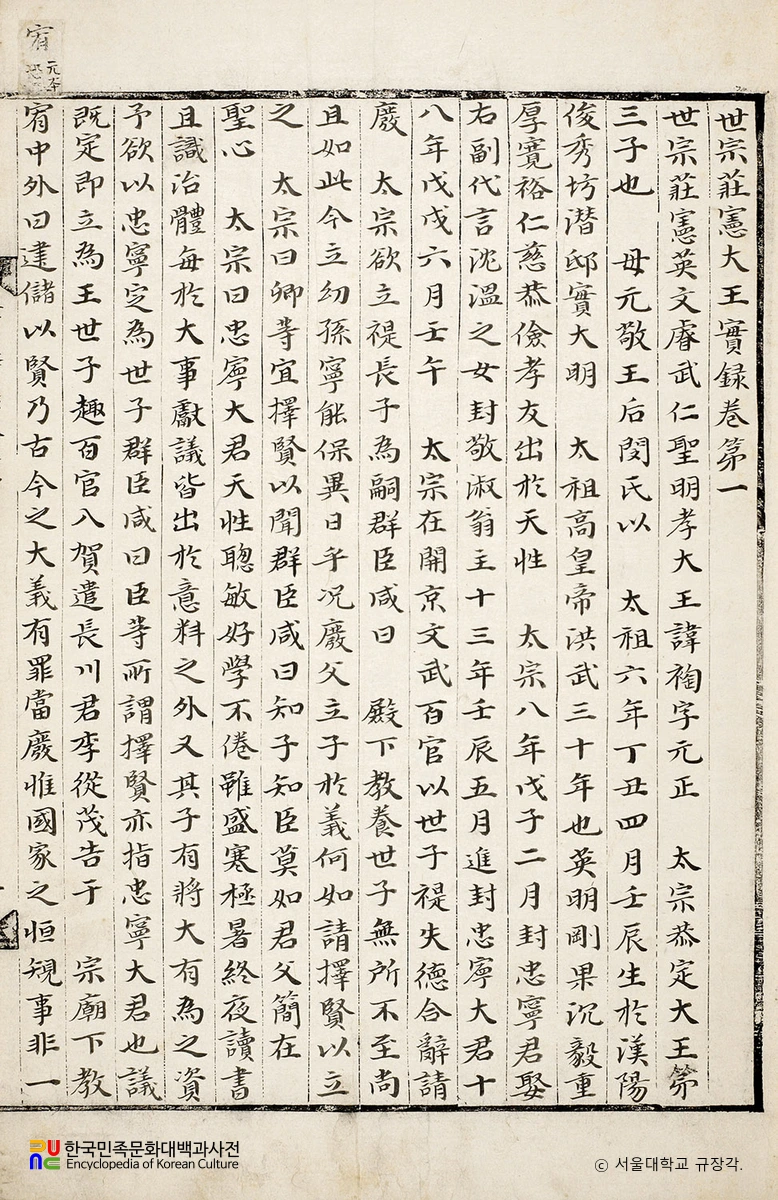 世宗莊憲大王實錄卷第一
世宗莊憲英文睿武仁聖明孝大王諱祹字元正 太宗恭定大王第
三子也 母元敬王后閔氏以 太祖六年丁丑四月壬辰生於漢陽
俊秀坊潛邸實大明 太祖高皇帝洪武三十年也英明剛果沉毅重
厚寬裕仁慈恭儉孝友出於天性 太宗八年戊子二月封忠寧君娶
右副代言沈溫之女封敬淑翁主十三年壬辰五月進封忠寧大君十
八年戊戌六月壬午 太宗在開京文武百官以世子禔失德合辭請
廢 太宗欲立禔長子爲嗣群臣咸曰 殿下敎養世子無所不至尙
且如此今立幼孫寧能保異日乎况廢父立子於義何如請擇賢以立
之 太宗曰卿等宜擇賢以聞群臣咸曰知子知臣莫如君父簡在
聖心 太宗曰忠寧大君天性聰敏好學不倦雖盛寒極暑終夜讀書
且識治體每於大事獻議皆出於意料之外又其子有將大有爲之資
予欲以忠寧定爲世子群臣咸曰臣等所謂擇賢亦指忠寧大君也議
旣定卽立爲王世子趣百官入賀遣長川君李從茂告于 宗廟下敎
宥中外曰建儲以賢乃古今之大義有罪當廢惟國家之恒規事非一
宥
元本
한국민족문화대백과사전
Encyclopedia of Korean Culture
ⓒ 서울대학교 규장각.